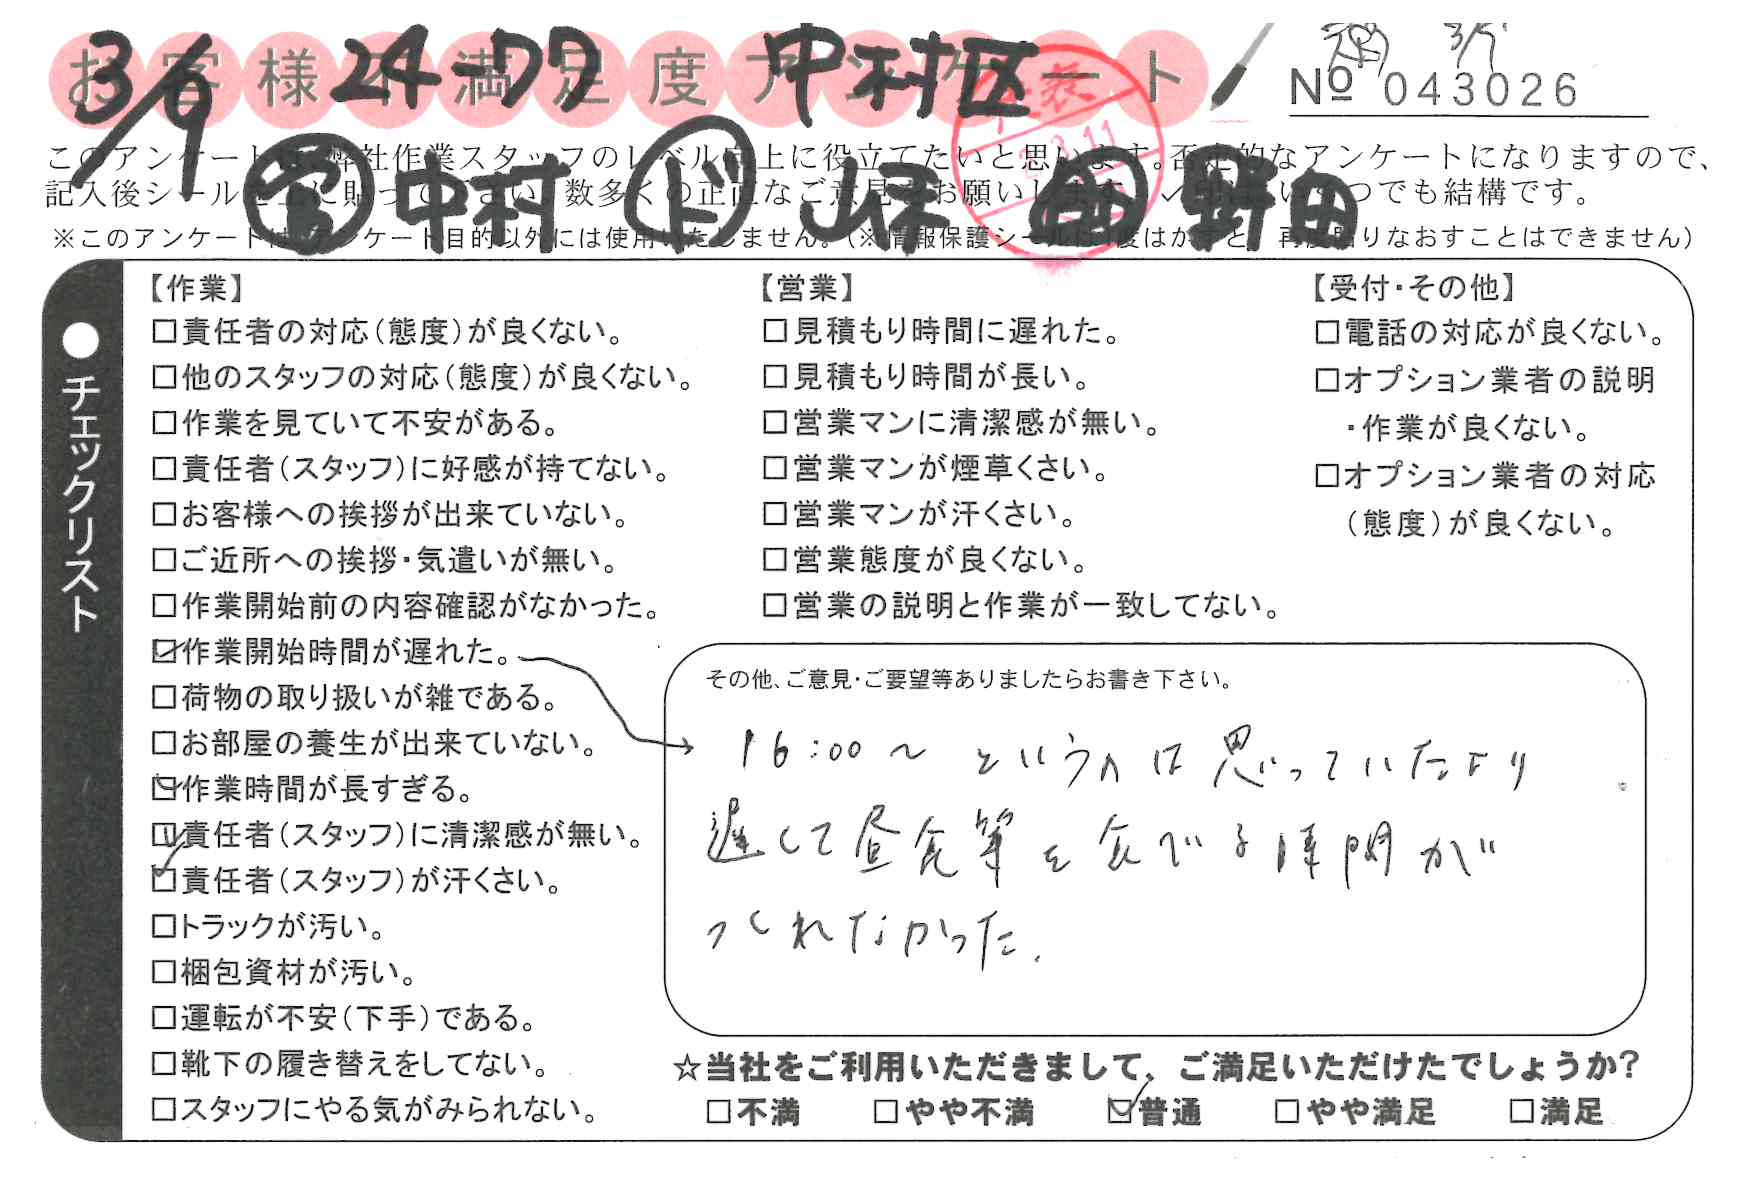 お客様不満足度アンケート
3/9 24-77 中村区
3/9
№ 043026
このアンケートは、弊社作業スタッフのレベル向上に役立てたいと思います。否定的なアンケートになりますので、
記入後シールを上に貼って下さい。数多くの正直なご意見をお願いします。✓印はいくつでも結構です。
営 中村 ド 山本 野田
※このアンケートはアンケート目的以外には使用いたしません。(※情報保護シールは1度はがすと、再度貼りなおすことはできません)
●チェックリスト
【作業】
□責任者の対応(態度)が良くない。
□他のスタッフの対応(態度)が良くない。
□作業を見ていて不安がある。
□責任者(スタッフ)に好感が持てない。
□お客様への挨拶が出来ていない。
□ご近所への挨拶・気遣いが無い。
□作業開始前の内容確認がなかった。
☑作業開始時間が遅れた。
□荷物の取り扱いが雑である。
□お部屋の養生が出来ていない。
☑作業時間が長すぎる。
☑責任者(スタッフ)に清潔感が無い。
☑責任者(スタッフ)が汗くさい。
□トラックが汚い。
□梱包資材が汚い。
□運転が不安(下手)である。
□靴下の履き替えをしてない。
□スタッフにやる気がみられない。
【営業】
□見積もり時間に遅れた。
□見積もり時間が長い。
□営業マンに清潔感が無い。
□営業マンが煙草くさい。
□営業マンが汗くさい。
□営業態度が良くない。
□営業の説明と作業が一致してない。
【受付・その他】
□電話の対応が良くない。
□オプション業者の説明
・作業が良くない。
□オプション業者の対応
(態度)が良くない。
その他、ご意見・ご要望等ありましたらお書き下さい。
16:00〜というのは思っていたより
遅くて昼食等を食べる時間が
つくれなかった.
☆当社をご利用いただきまして、ご満足いただけたでしょうか?
□不満 □やや不満 ☑普通 □やや満足 □満足